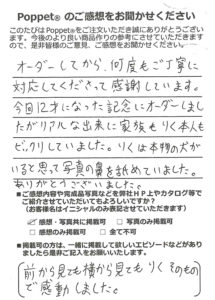 Poppet® のご感想をお聞かせください
このたびはPoppet®をご注文いただき誠にありがとうござい
ます。今後のより良い商品作りの参考にさせていただきます
ので、是非皆様のご意見、ご感想をお聞かせください。
オーダーしてから、何度もご丁寧に
対応してくださって感謝しています。
今回12才になった記念にオーダーしまし
たがリアルな出来に家族もりく本人も
ビックリしていました。りくは本物の犬が
いると思って写真の鼻を舐めていました。
ありがとうございました。
■ご感想内容や完成品写真などを弊社HP上やカタログ等で
ご紹介させていただいてもよろしいですか?
(お客様名はイニシャルのみ表記させていただきます)
感想・写真共に掲載可 □写真のみ掲載可
□感想のみ掲載可 □全て不可
■掲載可の方は、一緒に掲載して欲しいエピソードなどがあり
ましたら是非ご記入をお願いいたします。
前から見ても横から見ても りくそのもの
で感動しました。